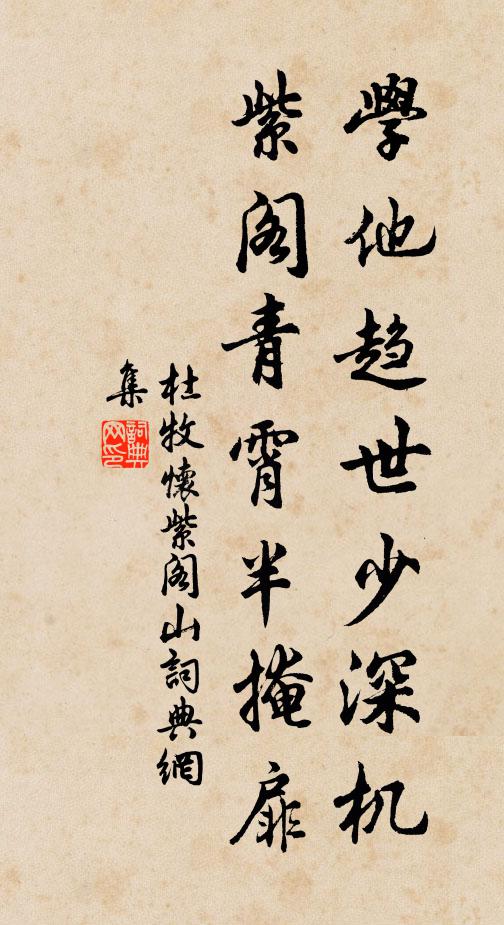 學他趨世少深机
紫阁青霄半掩扉
杜牧懷紫阁山詞典網
集
詞典
网印